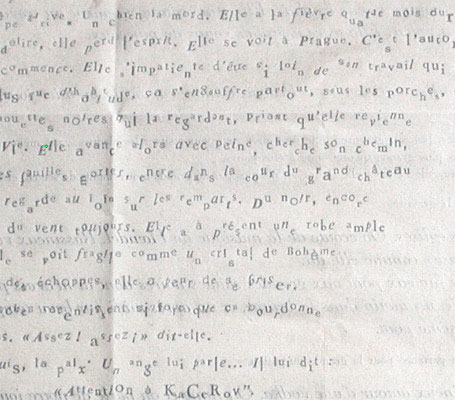 Un chien la mord. Elle a la fièvre quatre mois dur
délire, elle perd l'esprit. Elle se voit à Prague. C'est l'auto
commence. Elle s'impatiente d'être si loin de son travail qui
lus que d'habitude, ça s'engouffre partout, sous les porches,
ouettes noires qui la regardant, priant qu'elle revienne
Vie. Elle avance alors avec peine, cherche son chemin,
es fauilles mortes, entre dans la cour du grand château
regarde au loin sur les remparts. Du noir, encore
du vent toujours. Elle a à présent une robe ample
le se voit fragile comme un cristal de Bohême
des échoppes, elle a peur de se briser.
robes ralentissent si fort que ça bourdonne
s. «Assez! assez!» dit-elle.
uis, la paix. Un ange lui parle... Il lui dit :
«Attention à KaCeRov"